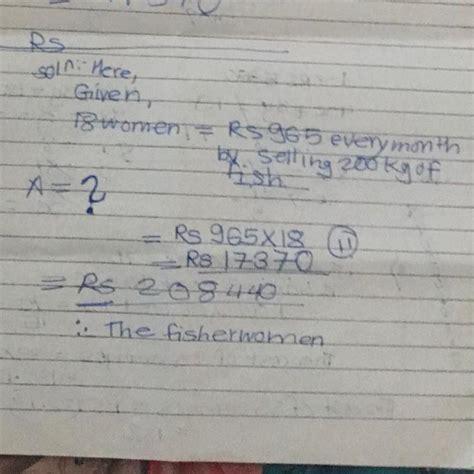 Rs
soln:- Here,
Given,
18 women = Rs 965 every month
by selling 200 kg of
fish
A = ?
= Rs 965 X 18
= Rs 17370
= Rs 208440
∴ The fisherwomen